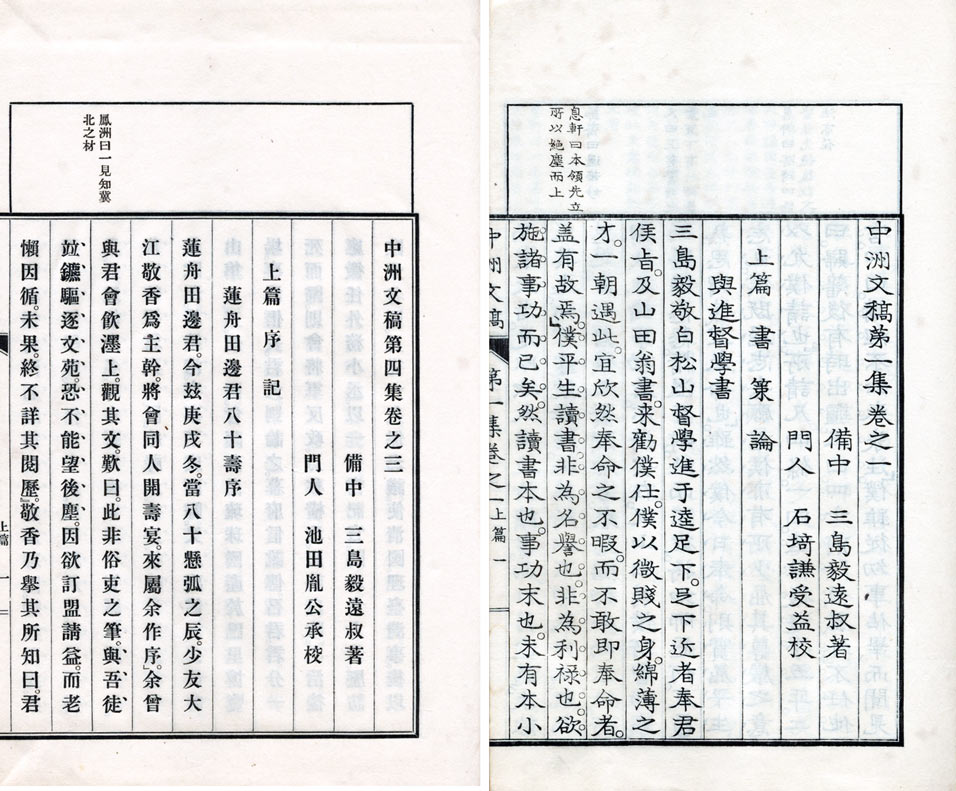 中洲文稿第一集卷之一
備中 三島毅遠叔著
門人 石埼謙受益校
上篇 書 策 論
與進督學書
三島毅敬白松山督學進于逵足下。足下近者奉君
侯旨。及山田翁書。来勸僕仕。僕以微賤之身。綿薄之
才。一朝遇此。宜欣然奉命之不暇。而不敢即奉命者。
盖有故焉。」僕平生讀書。非為名譽也。非為利禄也。欲
施諸事功而已矣。然讀書本也。事功末也。未有本小
息軒曰本領先立
所以絶塵而上
中洲文稿 第一集卷之一 上篇 一
中洲文稿第四集卷之三
備中 三島毅遠叔著
門人 池田胤公承校
上篇 序 記
蓮舟田邊君八十壽序
蓮舟田邊君。今玆庚戌冬。當八十懸弧之辰。少友大
江敬香爲主幹。將會同人開壽宴。來屬余作序。余曾
與君會飮濹上。觀其文。歎曰。此非俗吏之筆。與吾徒
竝鑣驅逐文苑。恐不能望後塵。因欲訂盟請益。而老
懶因循。未果。終不詳其閱歷。』敬香乃擧其所知曰。君
鳳洲曰一見知冀
北之材
上篇 一